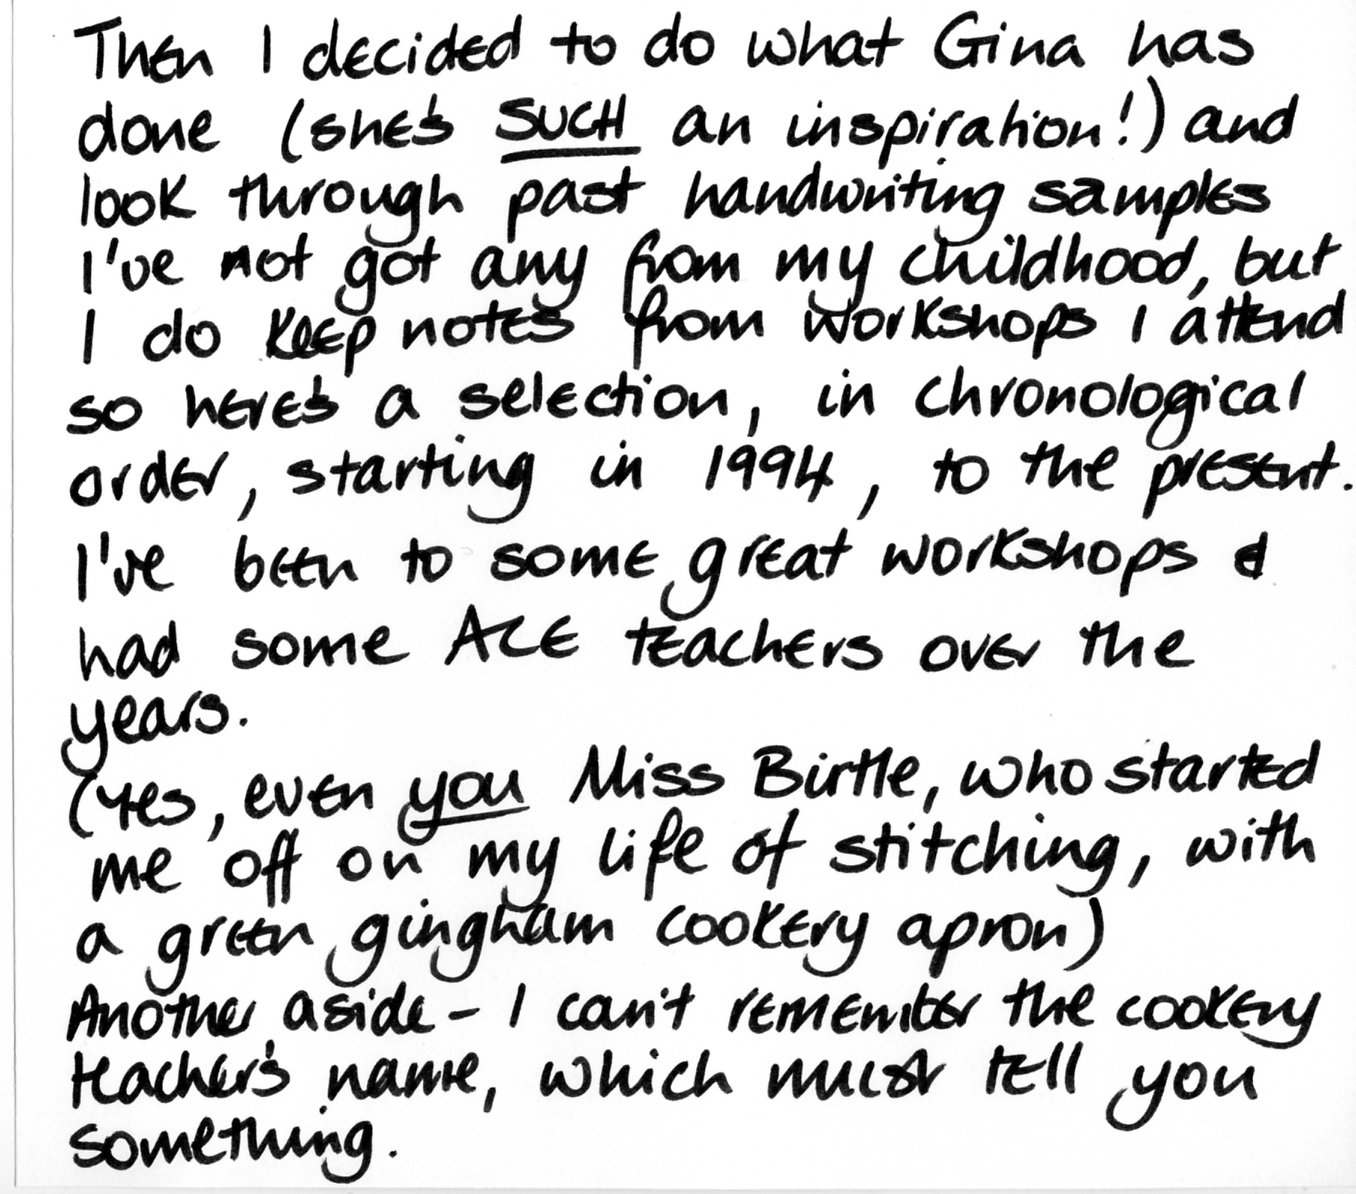 Then I decided to do what Gina has
done (she's SUCH an inspiration!) and
look through past handwriting samples
I've not got any from my childhood, but
I do keep notes from workshops I attend
so here's a selection, in chronological
order, starting in 1994, to the present.
I've been to some great workshops &
had some ACE teachers over the
years.
(Yes, even you Miss Birtle, who started
me off on my life of stitching, with
a green gingham cookery apron)
Another aside - I can't remember the cookery
teacher's name, which must tell you
something.